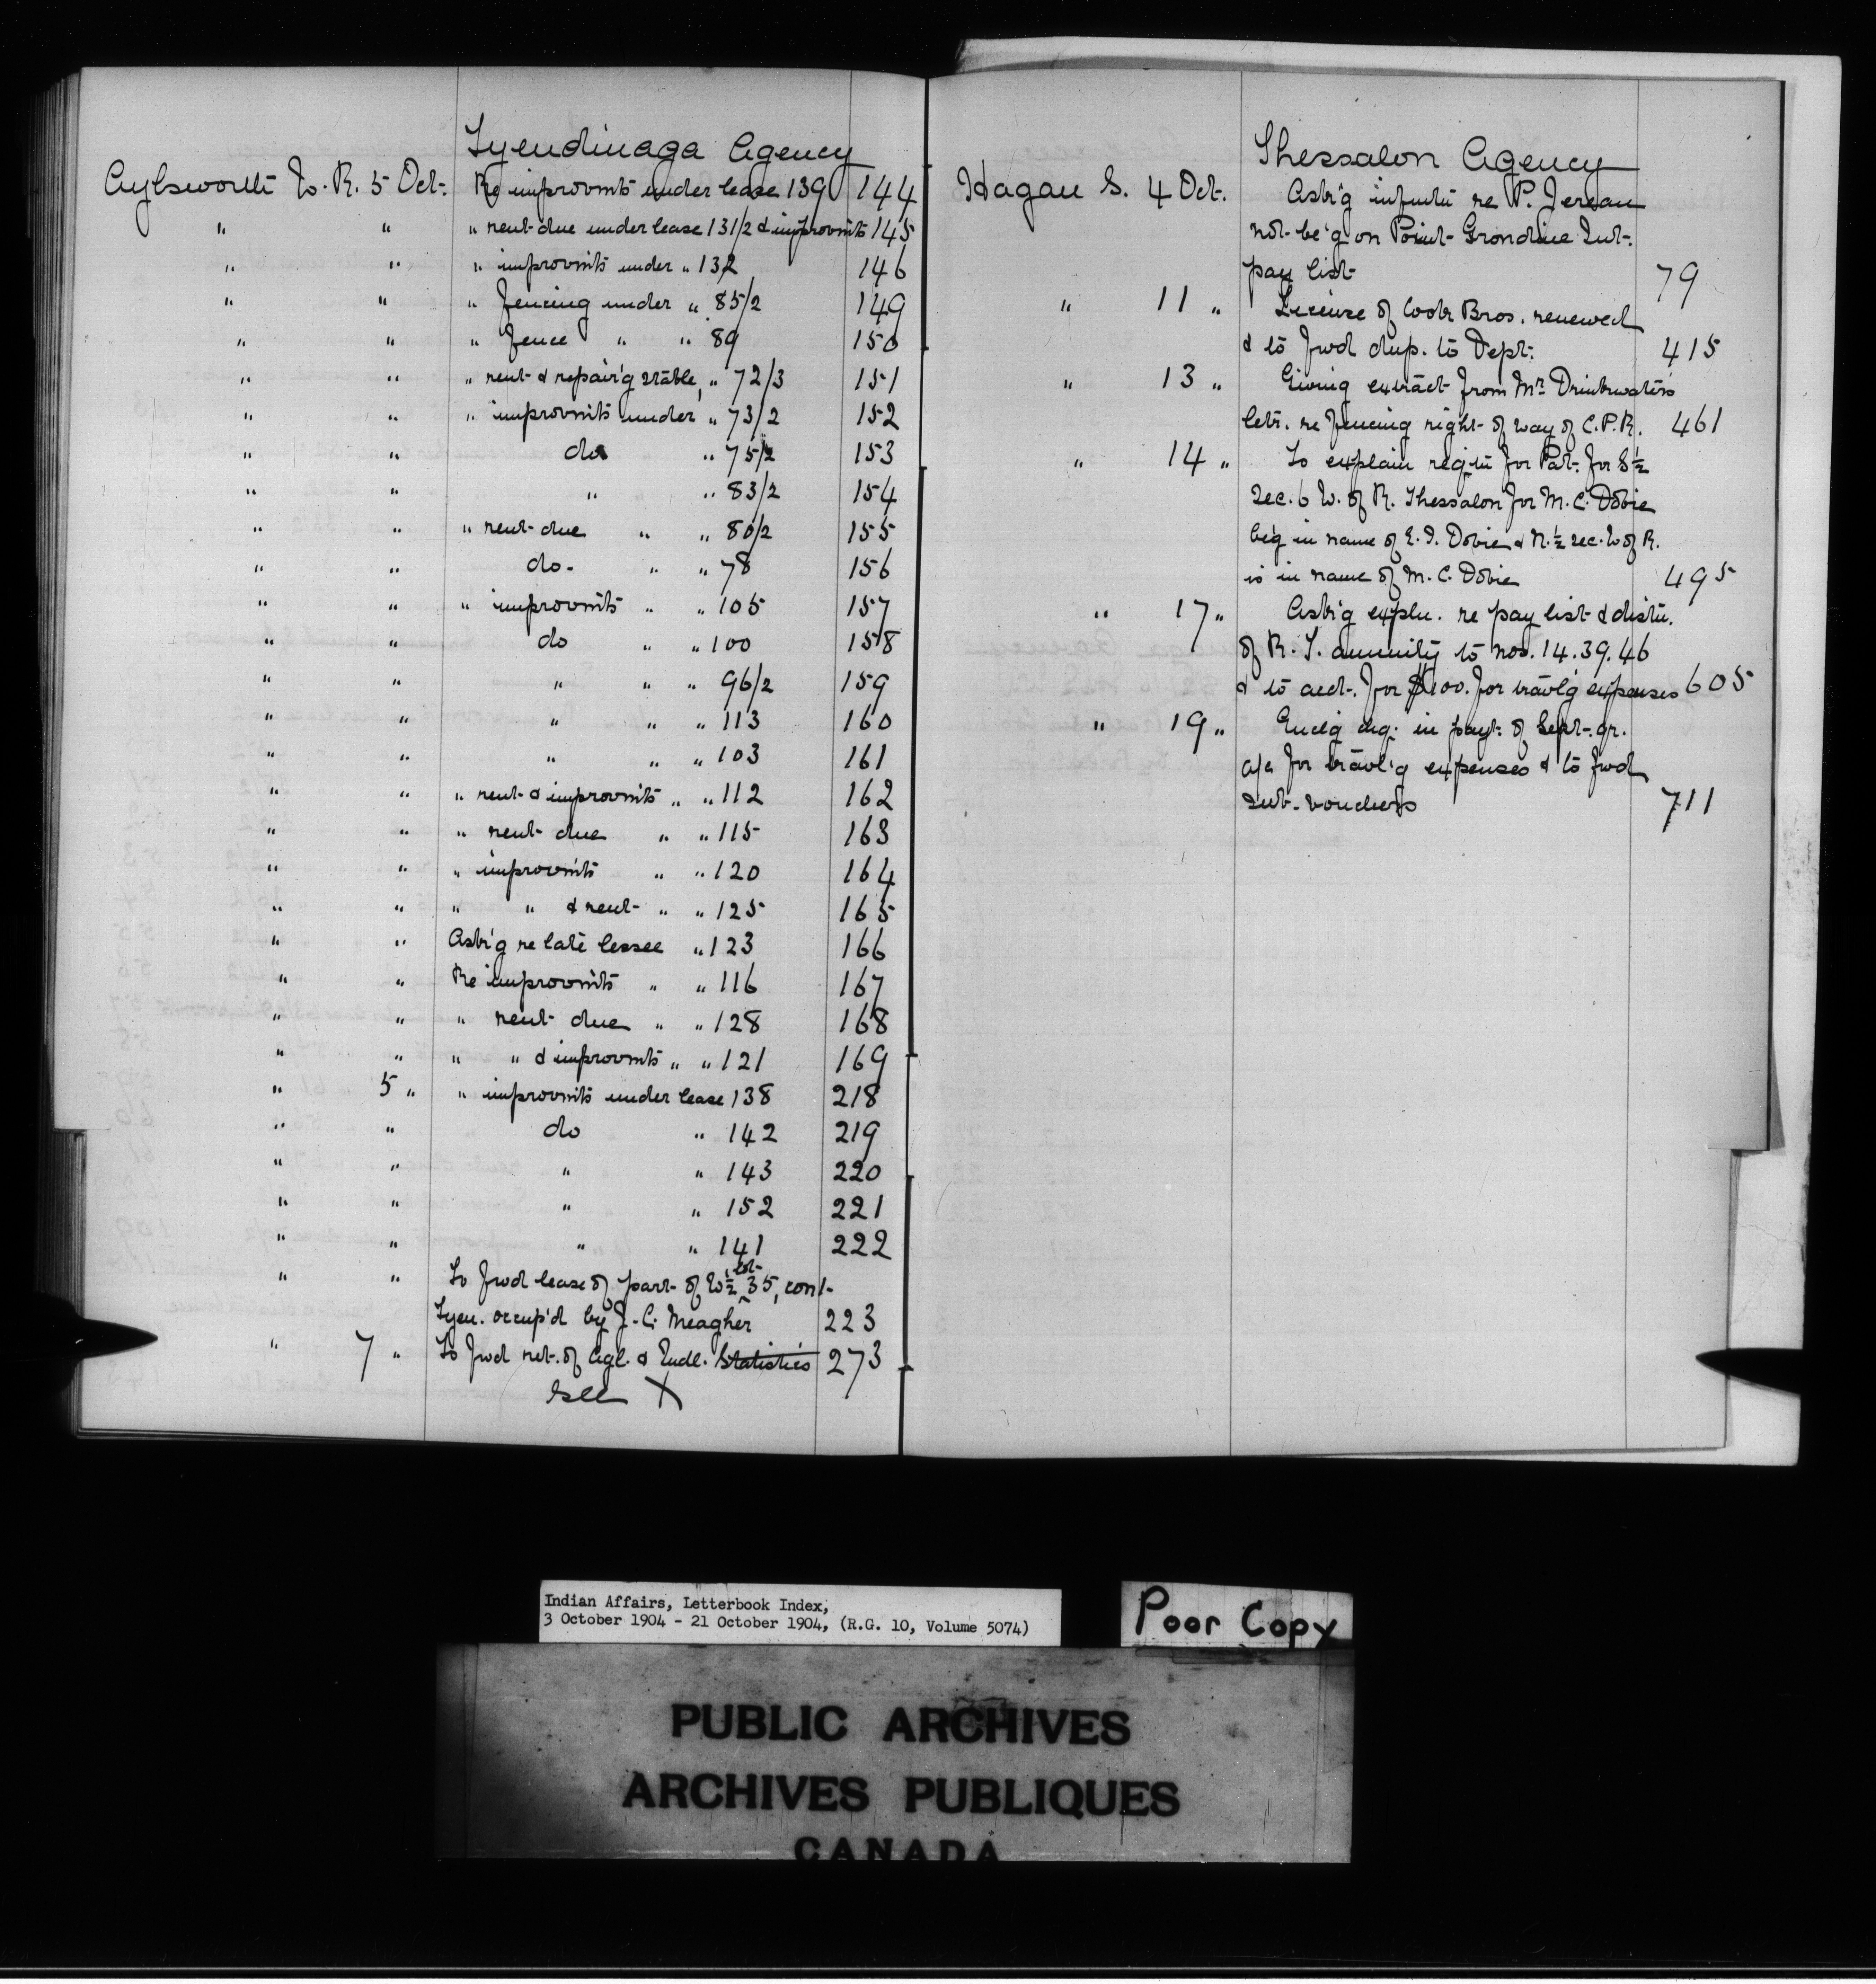 Tyendinaga Agency
Aylsworth W. R. 5 Oct. Re improvmts under lease 139 144
" " " rent due under lease 131/2 & improvmts 145
" " " improvmts under " 132 146
" " " fencing under " 85/2 149
" " " fence " " 89 150
" " " rent & repair'g stable, " 72/3 151
" " " improvmts under " 73/2 152
" " do " 75/2 153
" " " " 83/2 154
" " " rent due " " 80/2 155
" " do. " " 78 156
" " " improvmts " " 105 157
" " do " " 100 158
" " " " " 96/2 159
" " " " " 113 160
" " " " " 103 161
" " " rent & improvmts " " 112 162
" " " rent due " " 115 163
" " " improvmts " " 120 164
" " " " & rent " " 125 165
" " Ask'g re late lessee " 123 166
" " Re improvmts " " 116 167
" " " rent due " " 128 168
" " " " & improvmts " " 121 169
" 5 " " improvmts under lease 138 218
" " do " 142 219
" " " " 143 220
" " " " 152 221
" " " " 141 222
" " To fwd lease of part of W½ lot 35, con 1
Tyen. occup'd by J. C. Meagher 223
" 7 " To fwd ret. of Agl. & Indl. Statistics 273
See X
Thessalon Agency
Hagan S. 4 Oct. Ask'g infmtn re P.
not be'g on Point Grondine Int.
pay list 79
" 11 " License of Cook Bros. renewed
& to fwd dup. to Dept. 415
" 13 " Giving extract from Mr Drinkwater's
letr. re fencing right of way of C.P.R. 461
" 14 " To explain reqtn for Pat. for S½
Sec. 6 W. of R. Thessalon for M. C. Dobie
be'g in name of E. I. Dobie & N.½ sec. W of R.
is in name of M. C. Dobie 495
" 17 " Ask'g expln. re pay list & distn.
of R. T. annuity to nos. 14. 39. 46
& to acct. for $100. for travl'g expenses 605
" 19 " Encl'g chq. in payt. of Sept. qr.
a/c for travl'g expenses & to fwd
sub-vouchers 711
Indian Affairs, Letterbook Index,
3 October 1904 - 21 October 1904, (R.G. 10, Volume 5074)
Poor Copy
PUBLIC ARCHIVES
ARCHIVES PUBLIQUES
CANADA